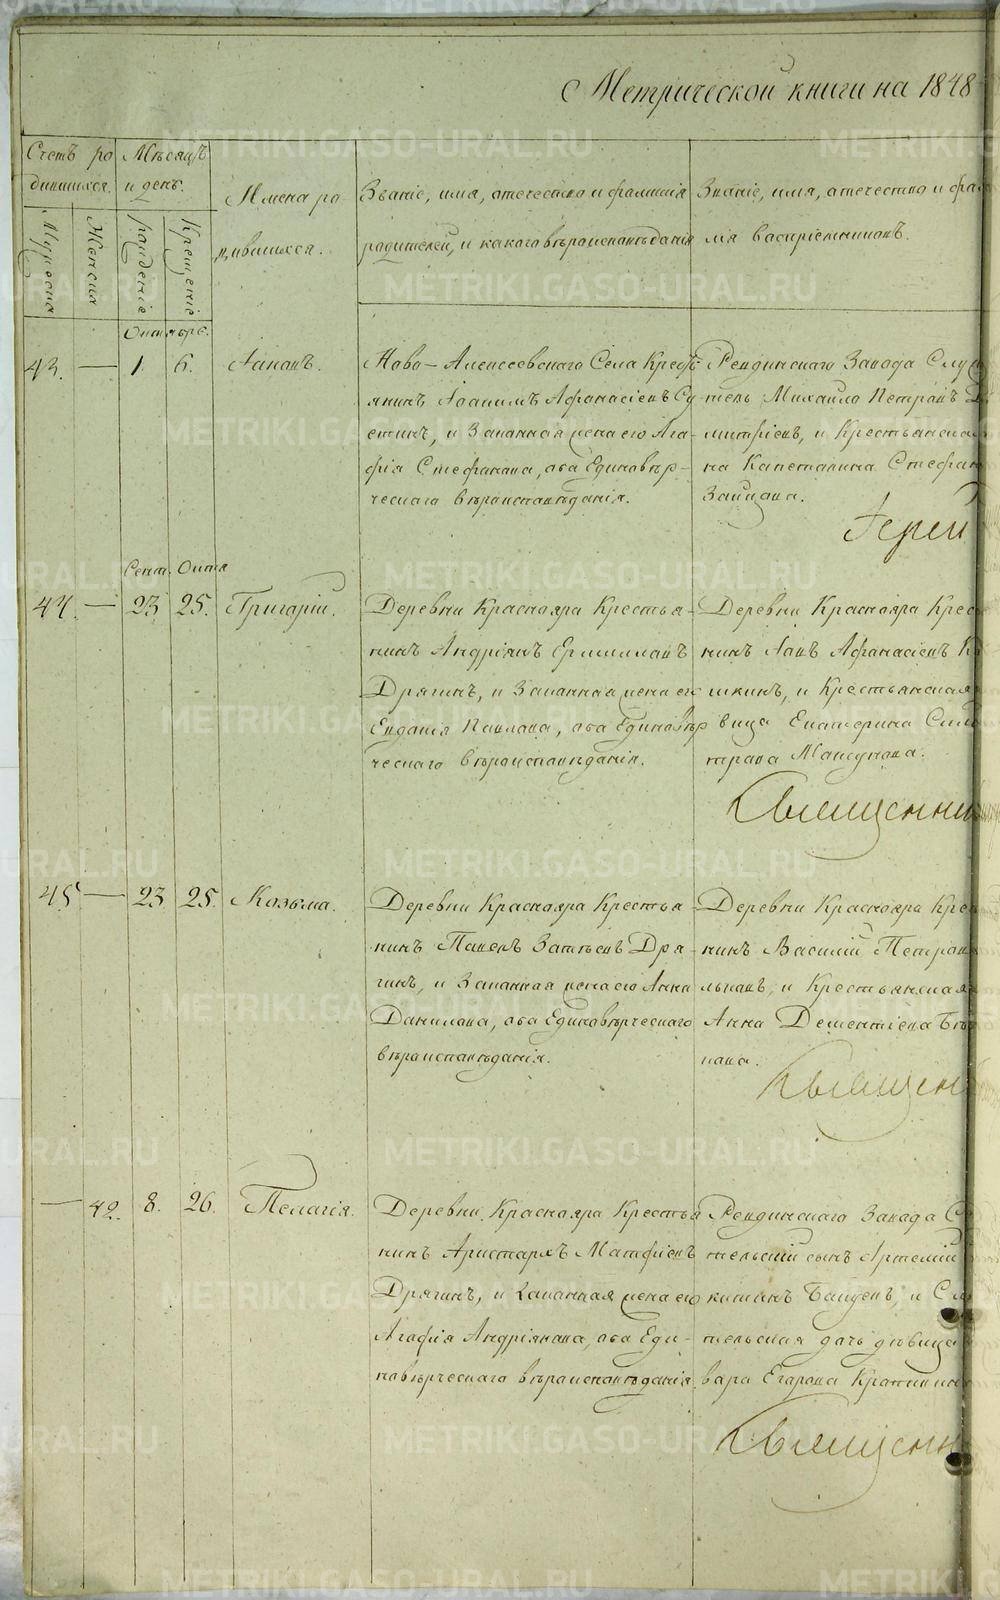 Метрической книги на 1848
Счетъ ро
дившихся.
Мѣсяцъ
и день.
Имена ро
дившихся.
Званіе, имя, отечество и фамилія
родителей, и какого вѣроисповѣданія
Званіе, имя, отечество и фами
лія воспріемниковъ.
Мужеска
Женска
рожденіе
Крещеніе
Октябрь.
43. — 1. 6. Іаковъ.
Ново-Алексеевскаго Села Кресть
янинъ Іоакимъ Афанасіевъ Су
етинъ, и Законная жена его Ага
фія Стефанова, оба Единовѣр-
ческаго вѣроисповѣданія.
Ревдинскаго Завода Слу
тель Михайло Петровъ
митріевъ, и Крестьянска
на Капеталина Стефан
Зайцова.
Іерей
Сент. Октя
44. — 23 25. Григорій.
Деревни Краснояра Крестья-
нинъ Андріянъ Ермиловъ
Дрягинъ, и Законная жена его
Евдокія Павлова, оба Единовѣр
ческаго вѣроисповѣданія.
Деревни Краснояра Крес
нинъ Іовъ Афанасіевъ
шкинъ, и Крестьянская
вица Екатерина
трова Максунова.
Священни
45 — 23 25. Козьма.
Деревни Краснояра Крестья
нинъ Павелъ Зотьевъ Дря-
гинъ, и Законная жена его Анна
Данилова, оба Единовѣрческаго
вѣроисповѣданія.
Деревни Краснояра Кре
нинъ Василій Петров
льковъ, и Крестьянская
Анна Дементіева
нова.
Священ
— 42. 8. 26. Пелагія.
Деревни Краснояра Крестья
нинъ Аристархъ Матфіевъ
Дрягинъ, и Законная жена его
Агафія Андріянова, оба Еди-
новѣрческаго вѣроисповѣданія.
Ревдинскаго Завода С
тельскій сынъ Артемій
китинъ Бан̆девъ, и Слу
тельская дочь дѣвица
вара Егорова
Священн